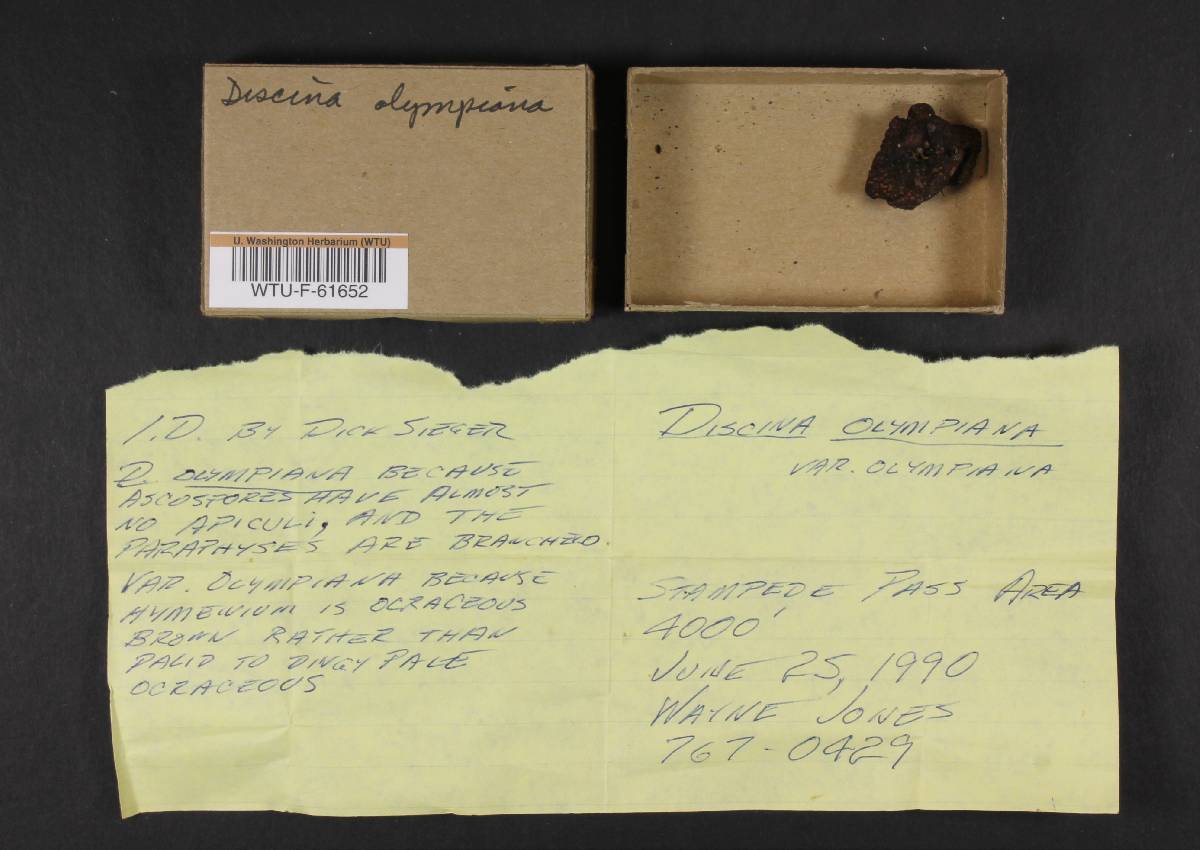 Discina olympiana
U. Washington Herbarium (WTU)
WTU-F-61652
I.D. BY DICK SIEGER
D. OLYMPIANA BECAUSE
ASCOSPORES HAVE ALMOST
NO APICULI, AND THE
PARAPHYSES ARE BRANCHED.
VAR. OLYMPIANA BECAUSE
HYMENIUM IS OCRACEOUS
BROWN RATHER THAN
PALID TO DINGY PALE
OCRACEOUS
DISCINA OLYMPIANA
VAR. OLYMPIANA
STAMPEDE PASS AREA
4000'
JUNE 25, 1990
WAYNE JONES
767-0429